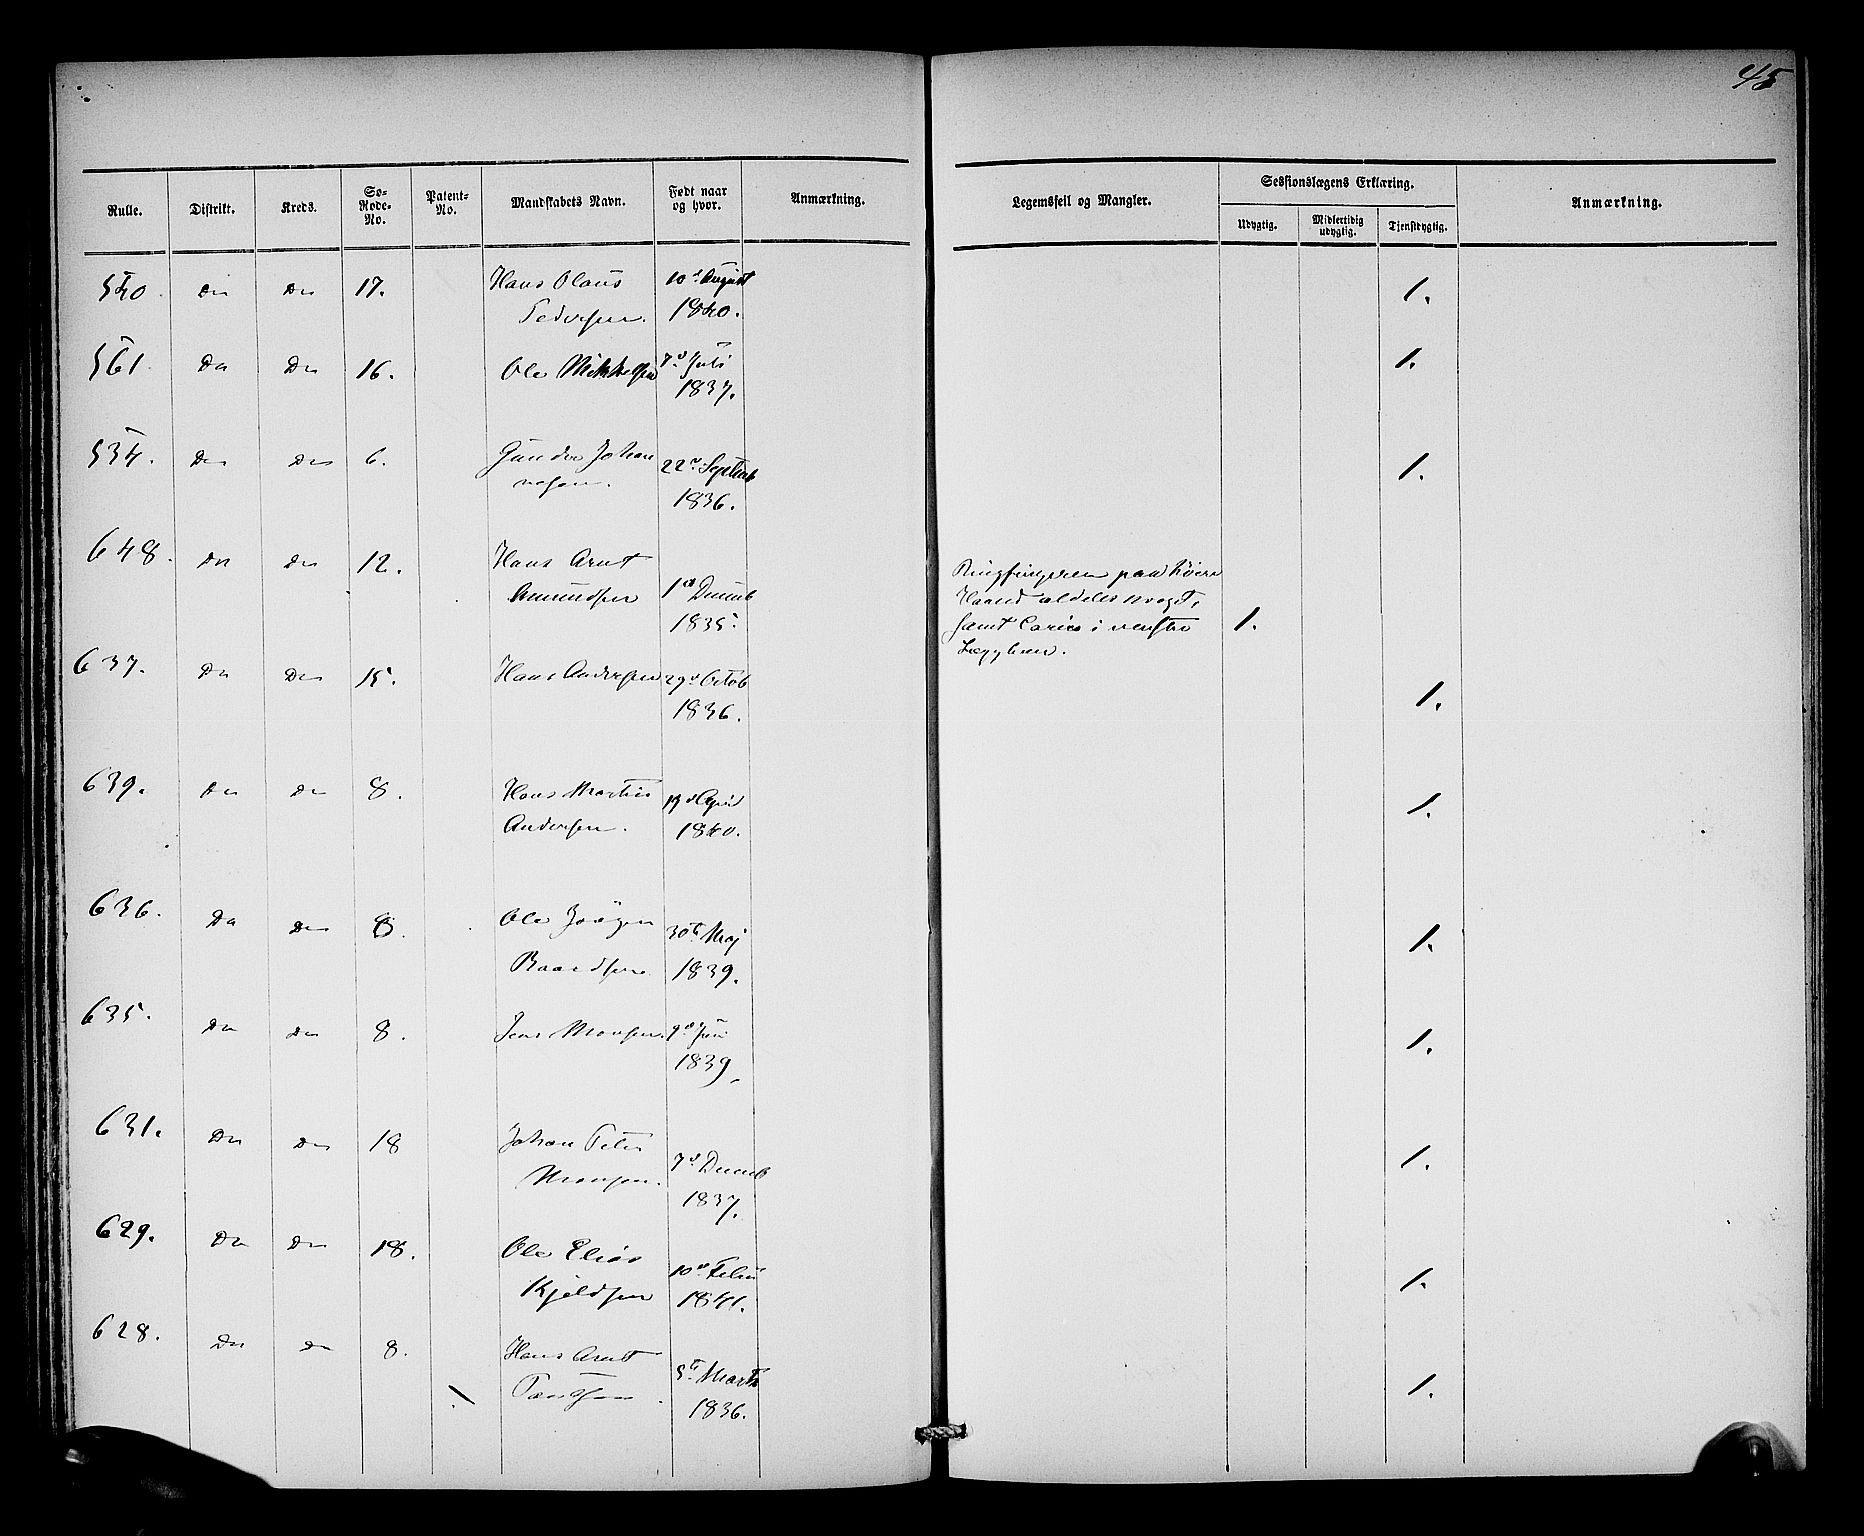 45
Rulle. Distrikt. Kreds. Sø-Rode-No. Patent-No. Mandskabets Navn. Født naar og hvor. Anmærkning. Legemsfeil og Mangler. Sessionslægens Erklæring. Anmærkning.
Udygtig. Midlertidig udygtig. Tjenstdygtig.
540. Do Do 17. Hans Olaus 10d August 1.
Pedersen. 1840.
561. Do Do 16. Ole Mikkelsen 7d Juli 1.
1837.
534. Do Do 6. Gunder Johan 22n Septemb 1.
nesen. 1836.
648. Do Do 12. Hans Arnt
Amundsen 1d Decemb
1835.
Ringfingeren paa høire
Haand aldeles kroget,
samt Caries i venstre
Læggbeen. 1.
637. Do Do 15. Hans Andersen 29d Octob 1.
1836.
639. Do Do 8. Hans Martin 19d April 1.
Andersen. 1840.
636. Do Do 8. Ole Jørgen 30te Maj 1.
Baardsen 1839.
635. Do Do 8. Jens Monsen. 9d Juni 1.
1839,
631. Do Do 18 Johan Peter 7d Decemb 1.
Monsen. 1837.
629. Do Do 18. Ole Elias 10d Febru 1.
Kjeldsen 1841.
628. Do Do 8. Hans Arnt 5t Marts 1.
1836.